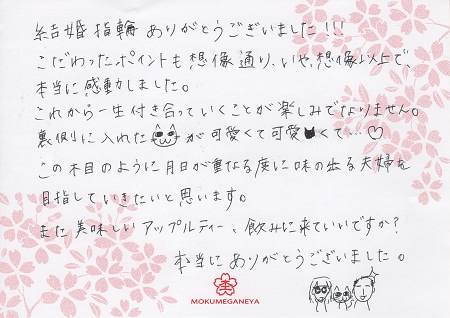 結婚指輪ありがとうございました!!!
こだわったポイントも想像通り、いや、想像以上で、
本当に感動しました。
これから一生付き合っていくことが楽しみでなりません。
裏側に入れた が可愛くて可愛くて…♡
この木目のように月日が重なる度に味の出る夫婦を
目指していきたいと思います。
また美味しいアップルティー、飲みに来ていいですか?
本当にありがとうございました。
MOKUMEGANEYA